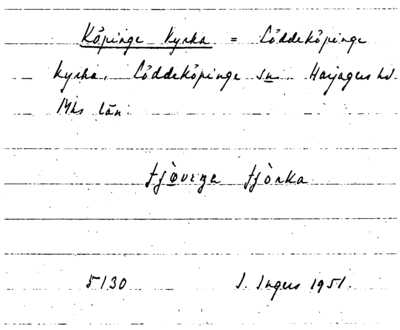 Köpinge kyrka = Löddeköpinge
kyrka, Löddeköpinge sn Harjagers hd
Mhs län.
tjøvenge tjörka
5130 I. Ingers 1951.